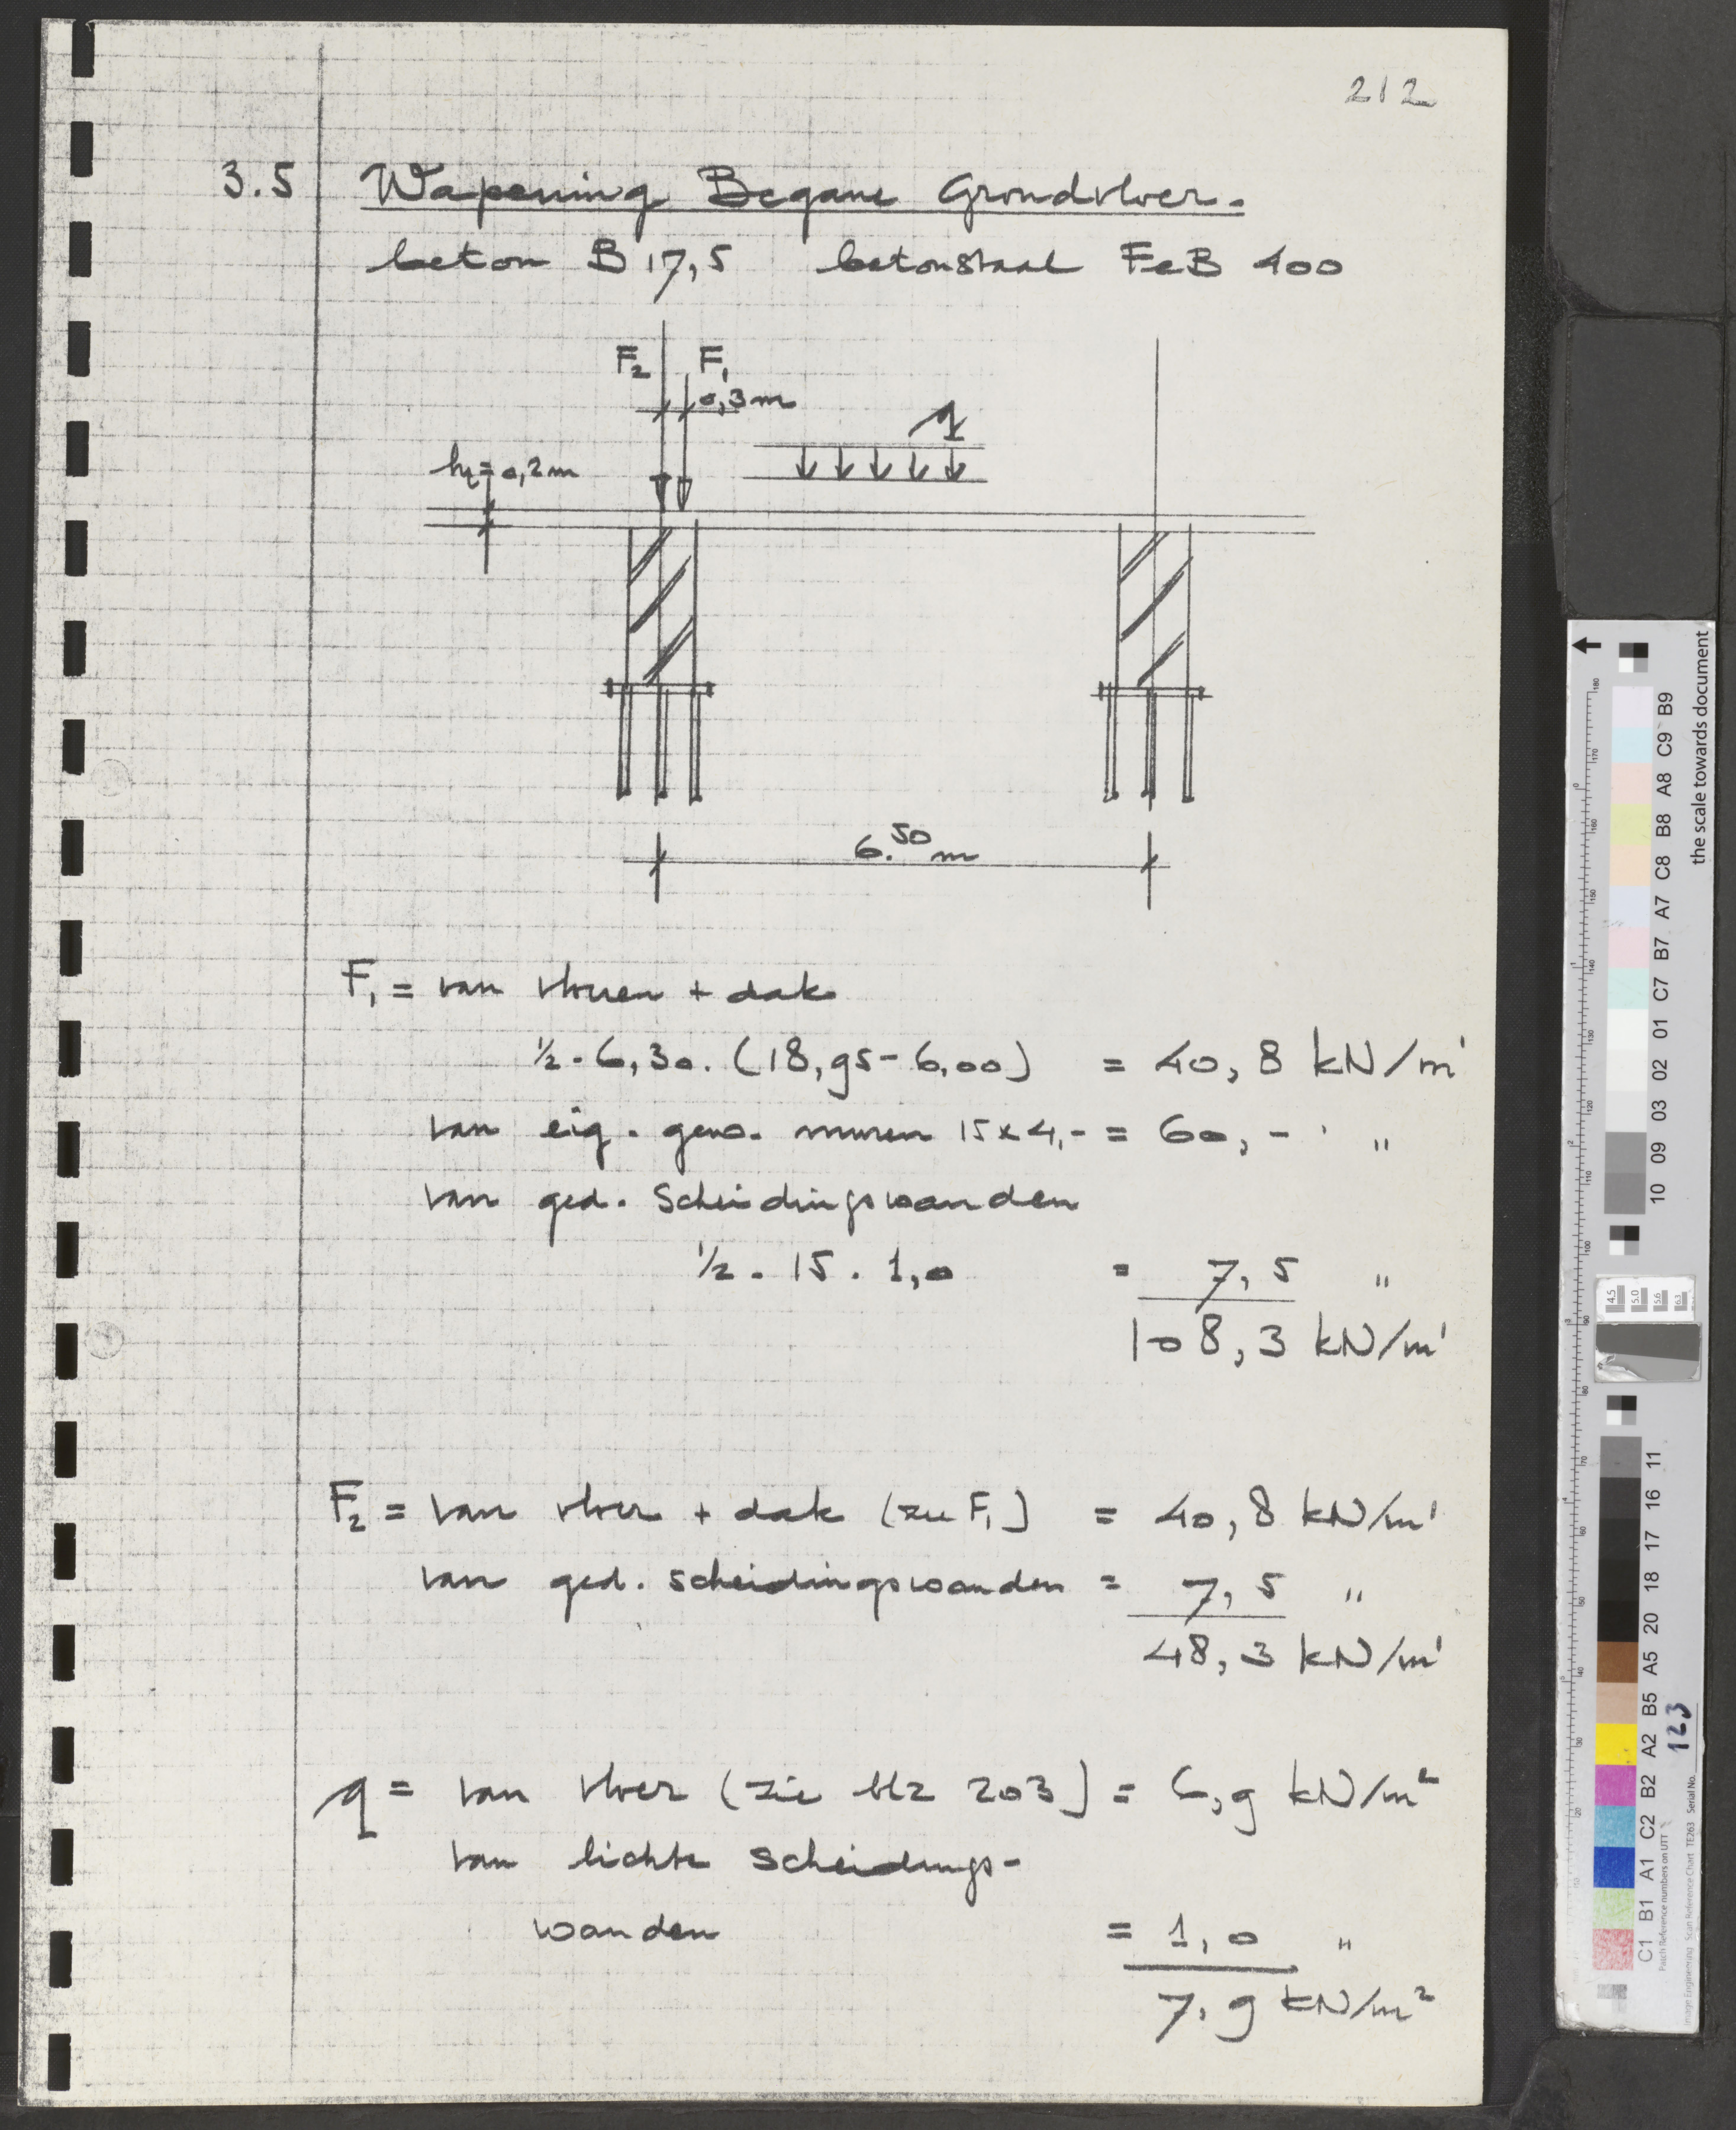 212
3.5 Wapening Begane Grondvloer.
beton B 17,5 betonstaal FeB 400
F2 F1
0,3m
q
ht = 0,2m
6.50 m
F1 = van vloeren + dak
½ . 6,30 . (18,95 - 6,00) = 40,8 kN/m'
van eig. gew. muren 15 x 4,- = 60,- "
van ged. Scheidingswanden
½ . 15 . 1,0 = 7,5 "
108,3 kN/m'
F2 = van vloer + dak (zie F1) = 40,8 kN/m'
van ged. scheidingswanden = 7,5 "
48,3 kN/m'
q = van vloer (zie blz 203) = 6,9 kN/m²
van lichte scheidings-
wanden = 1,0 "
7,9 kN/m²
the scale towards document
C1 B1 A1 C2 B2 A2 B5 A5 20 18 17 16 11
10 09 03 02 01 C7 B7 A7 C8 B8 A8 C9 B9
Patch Reference numbers on UTT
Image Engineering Scan Reference Chart TE263 Serial No. 123